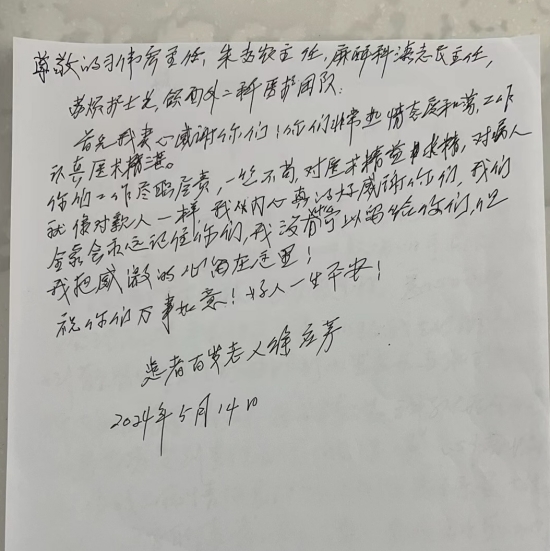 尊敬的刁伟宏主任,朱 主任,麻醉科 志民主任,
苏 护士长,颌面外二科医护团队:
首先我衷心感谢你们!你们非常热情态度和蔼,工作
认真医术精湛。
你们工作尽职尽责,一丝不苟,对医术精益求精,对病人
就像对款人一样,我从内心真的好感谢你们,我们
全家会永远记住你们,我没有 以留给你们,但
我把感激的心留在这里!
祝你们万事如意!好人一生平安!
患者百岁老人徐
2024年5月14日